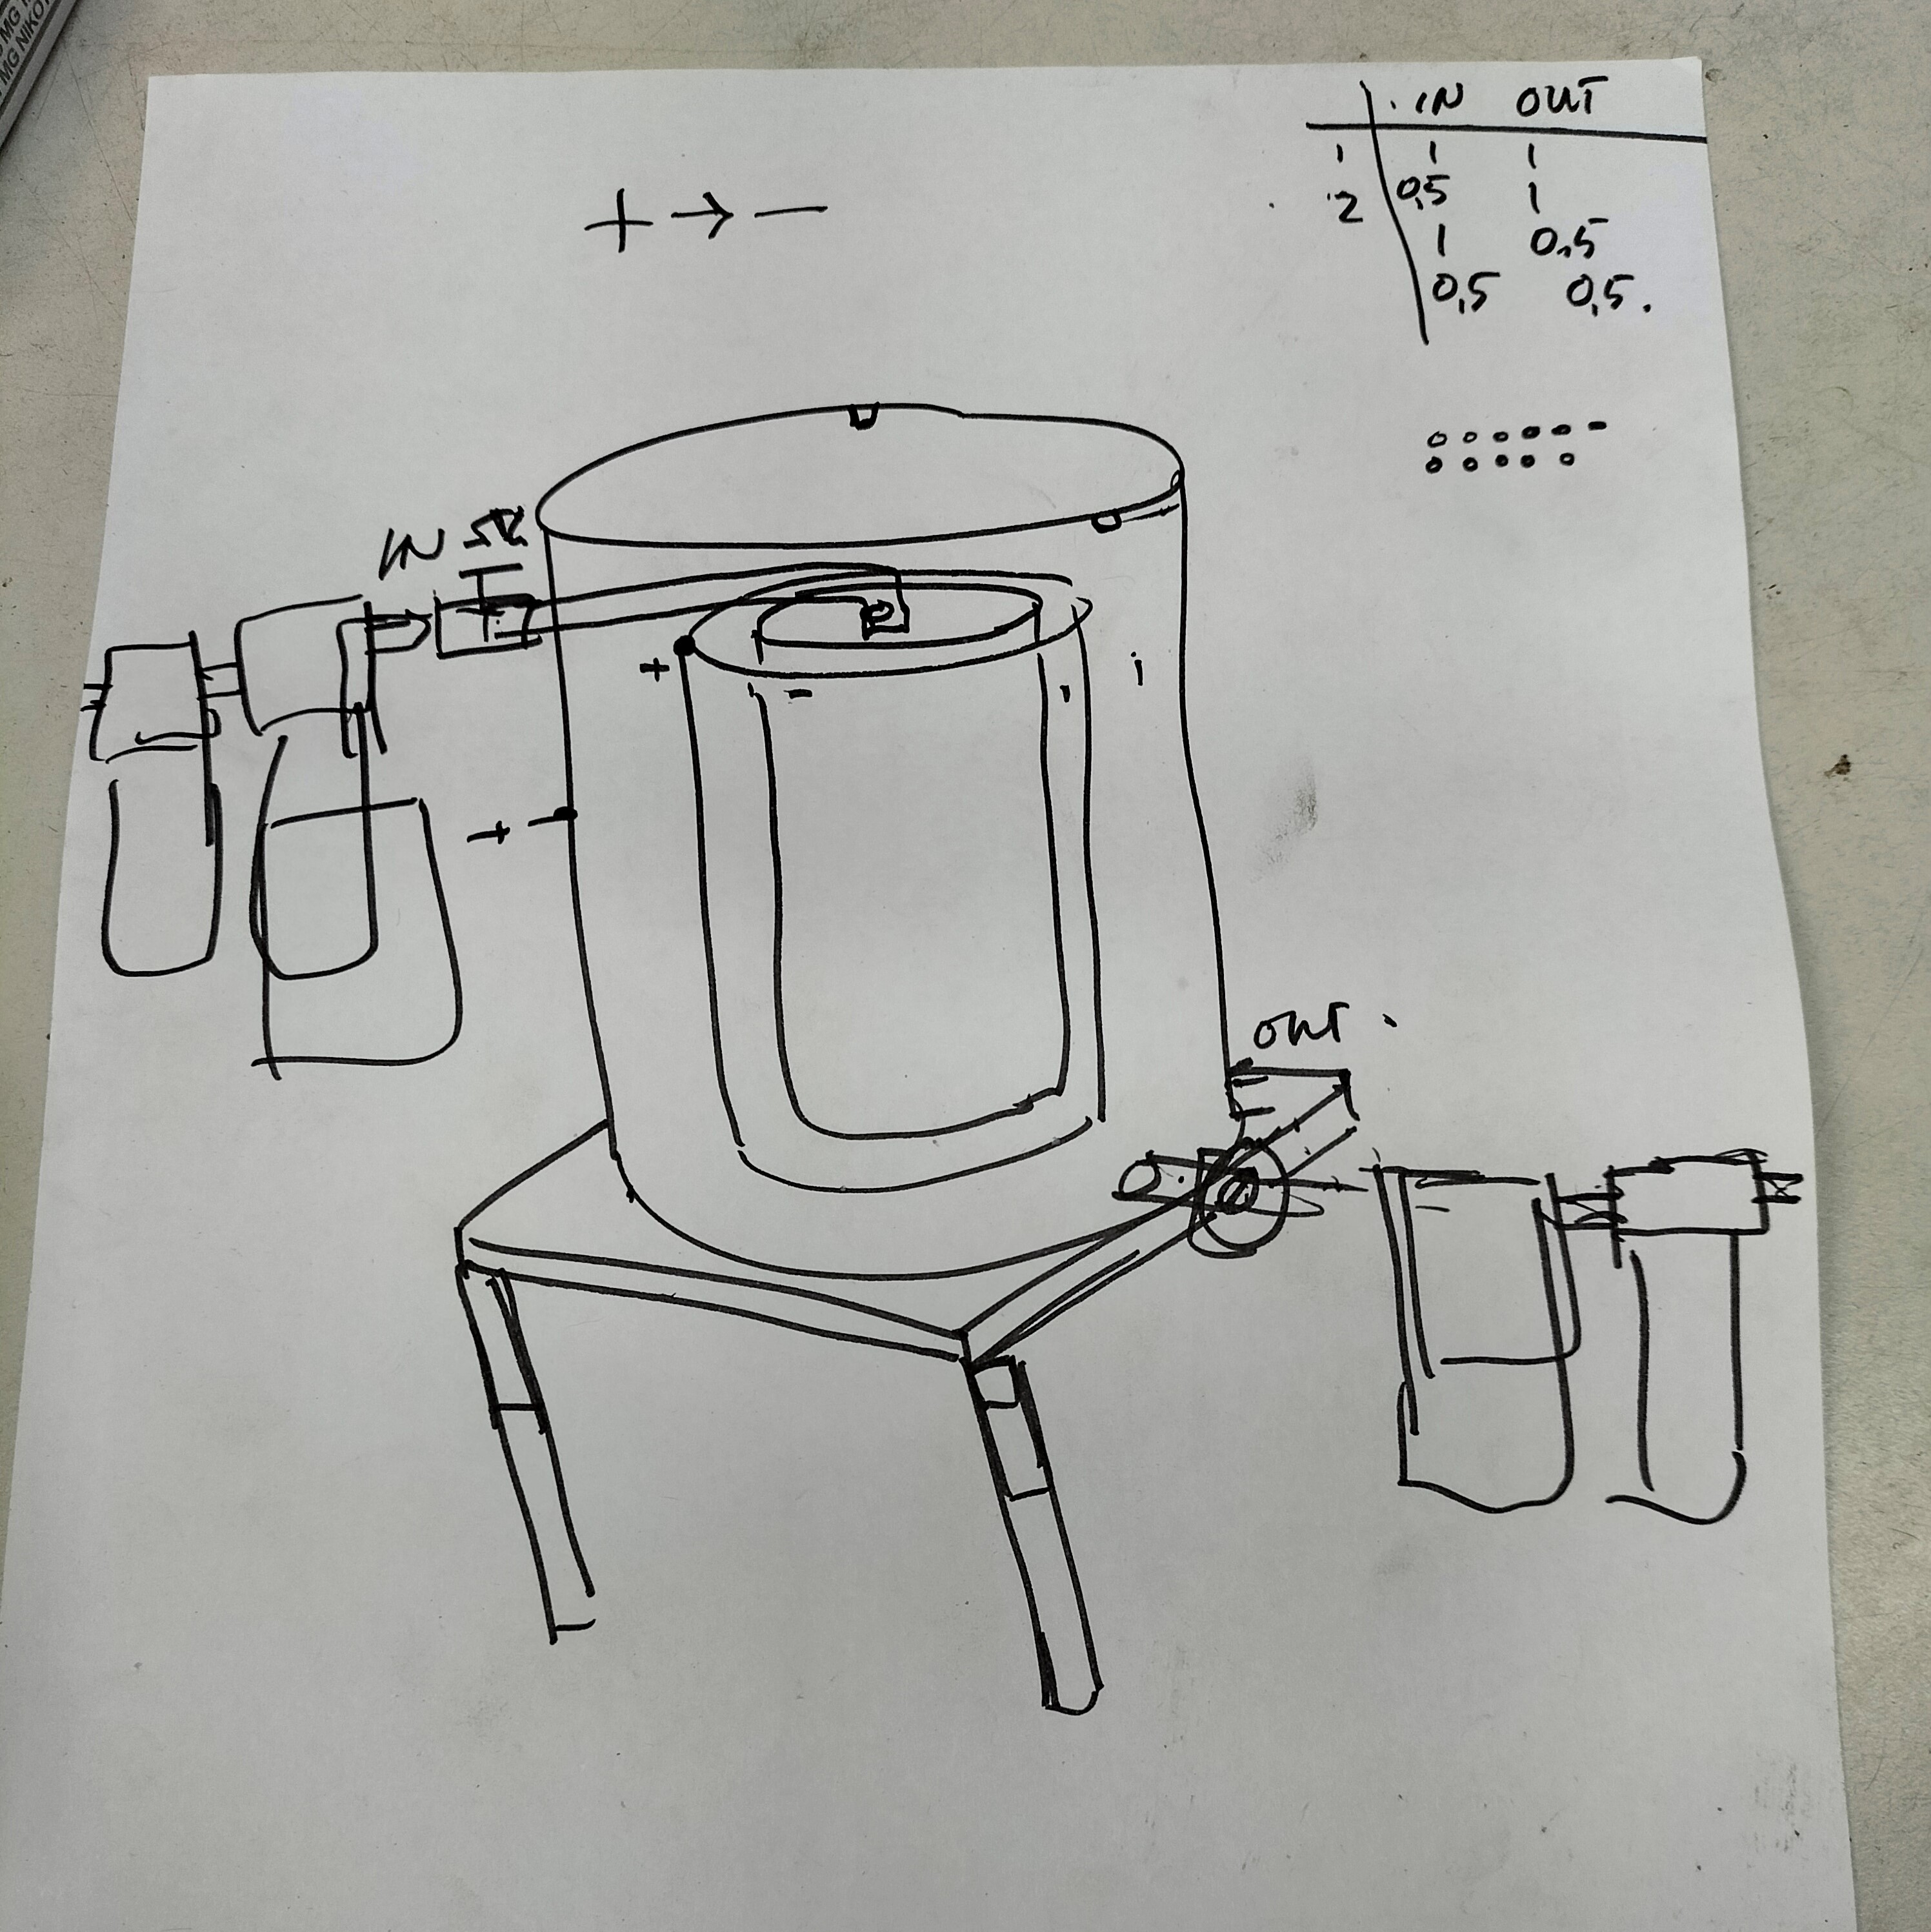 MG NIKOT
IN OUT
1 1 1
2 0,5 1
1 0,5
0,5 0,5.
+ → −
IN
+ -
+
OUT.